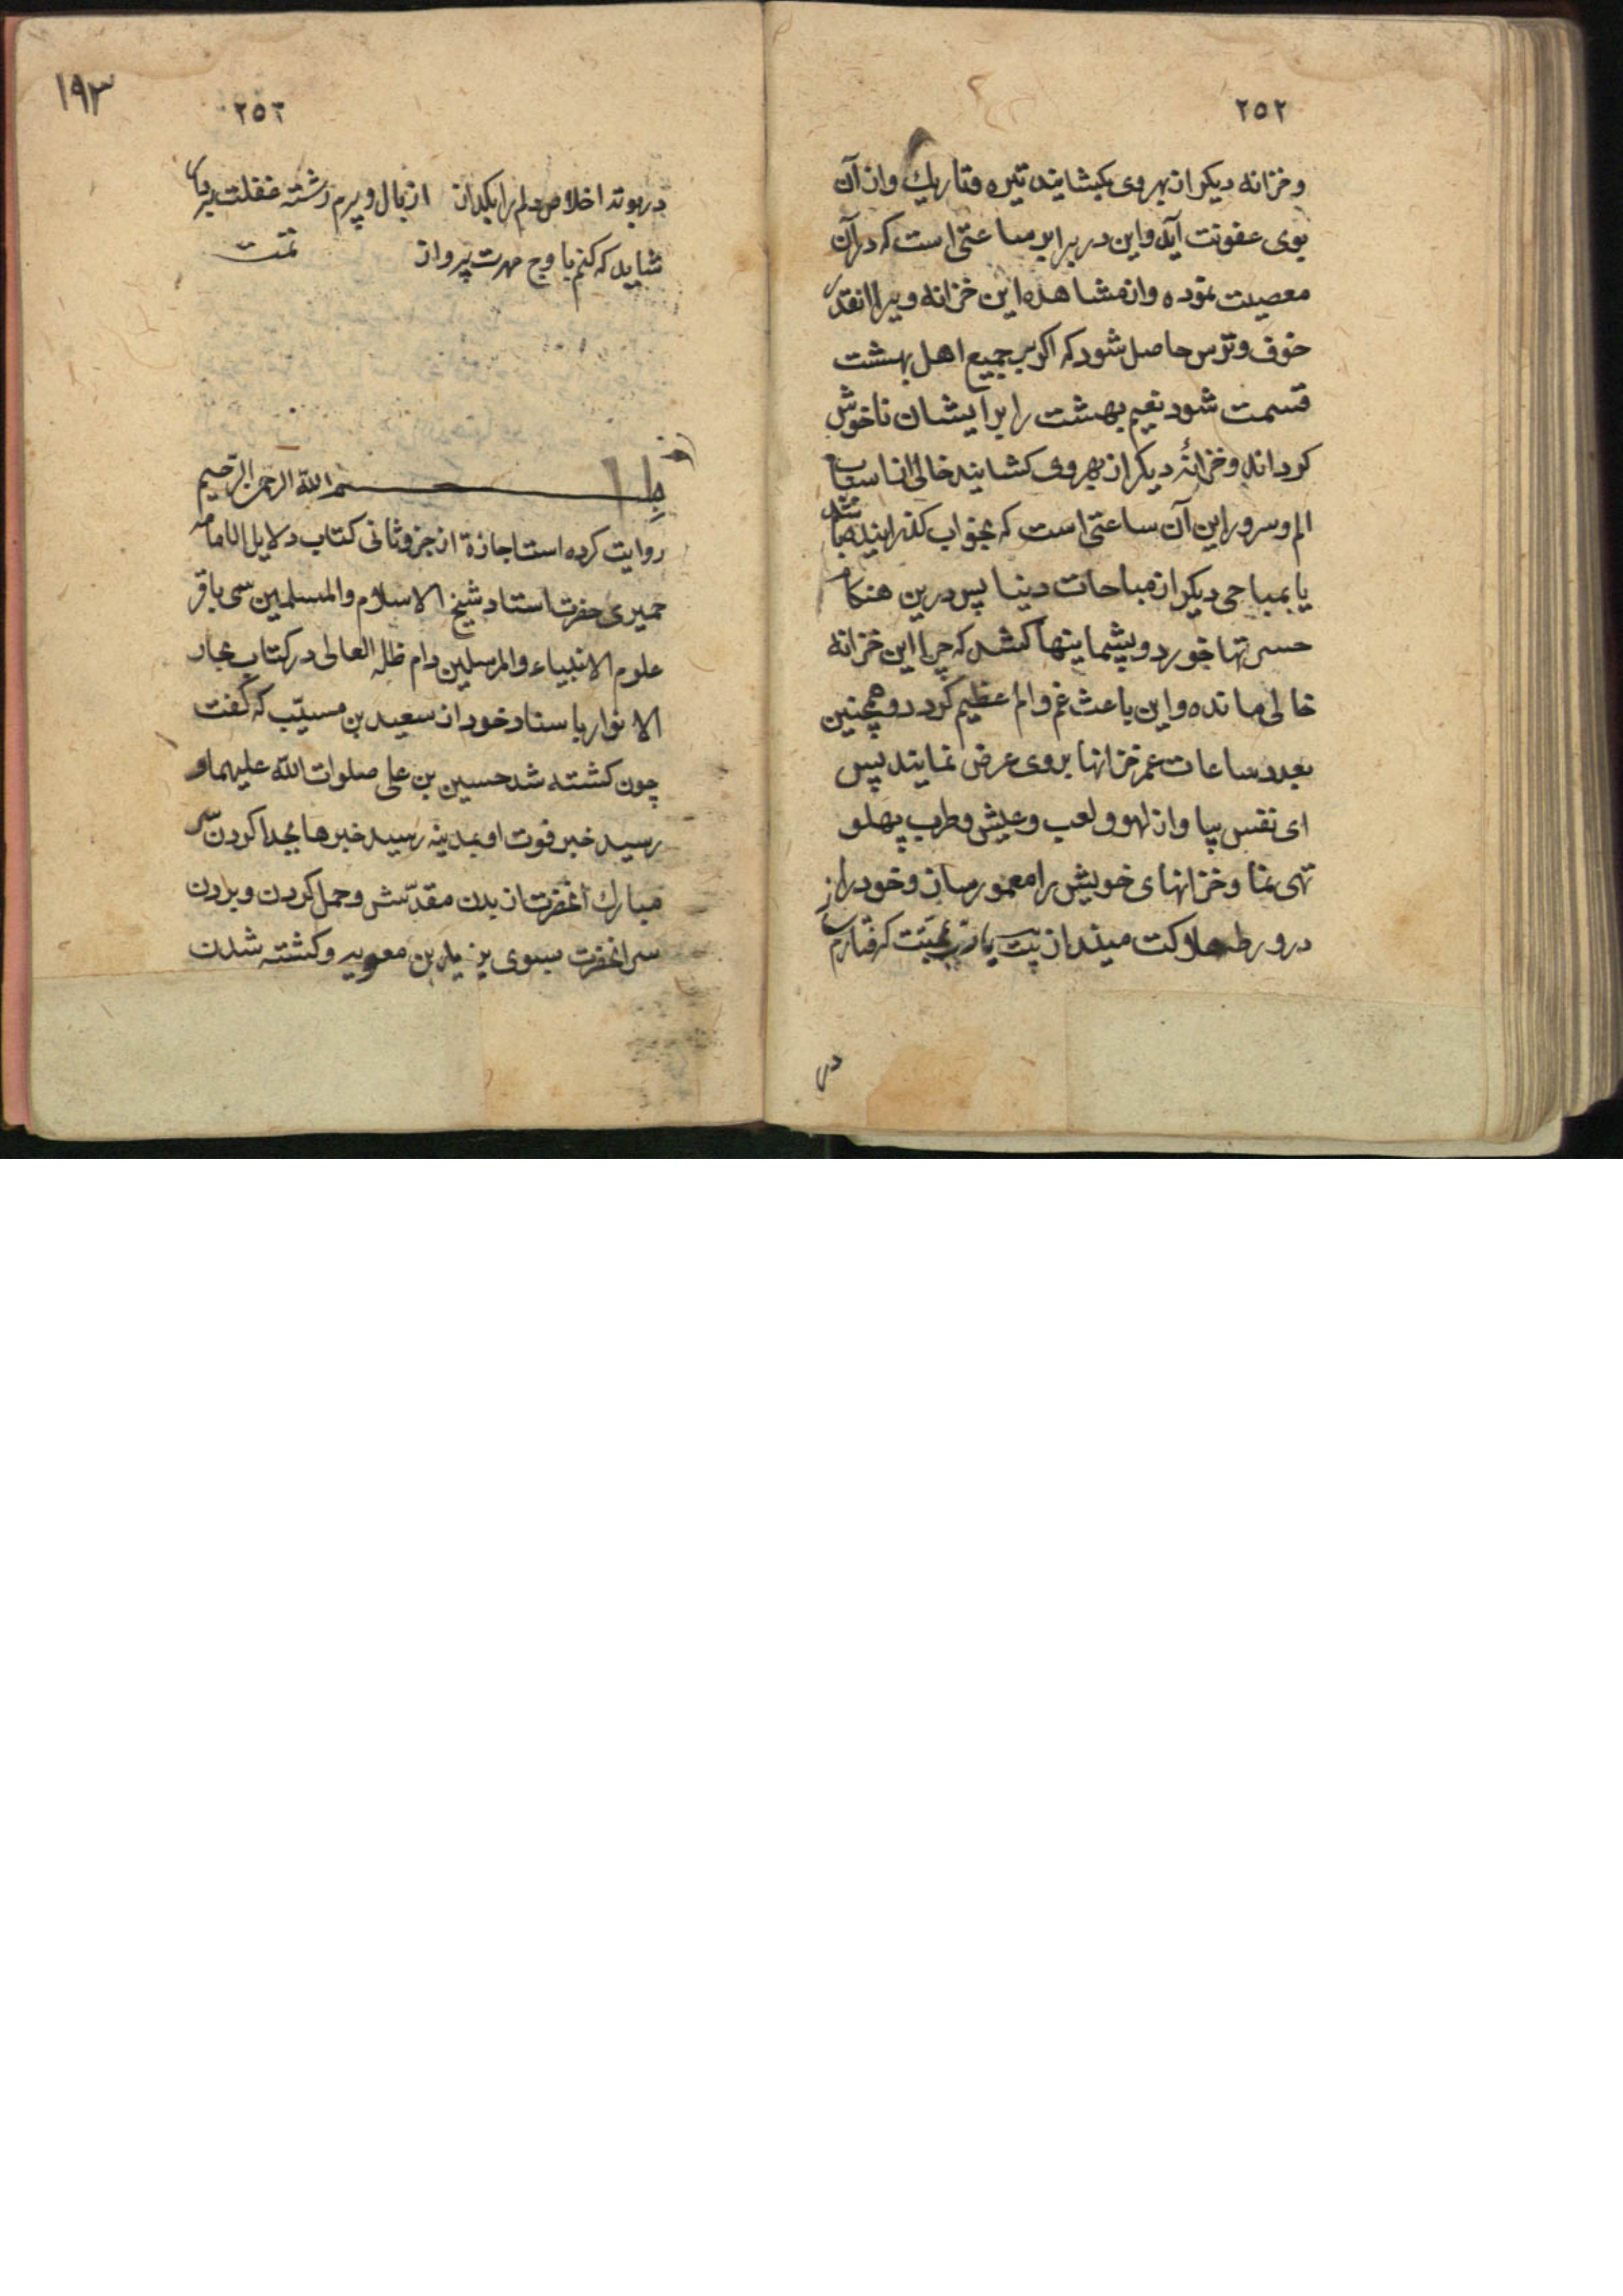 ٢٥٢
وخزانه دیکر از بهر وی بکشایند تیره وتاریك واز آن
بوی عفونت آید واین در برابر ساعتی است که در آن
معصیت نموده واز مشاهده این خزانه ویرا انقدر
خوف وترس حاصل شود که اکر بر جمیع اهل بهشت
قسمت شود نعیم بهشت را بر ایشان ناخوش
کرداند وخزانهٔ دیکر از بهر وی کشایند خالی از اسباب
الم وسرور این آن ساعتی است که بخواب کذرانیده باشد
یا بمباحی دیکر از مباحات دینا پس درین هنکام
حسرتها خورد وپشیمانیها کشد که چرا این خزانه
خالی مانده واین باعث غم والم عظیم کردد وهمچنین
بعدد ساعات عمر خزانها بروی عرض نمایند پس
ای نفس بیا واز لهو ولعب وعیش وطرب پهلو
تهی نما وخزانهای خویش را معمور ساز وخود را از
در ورطه هلاکت مینداز بیت یارب کرفتارم
در
١٩٣
٢٥٣
در بوته اخلاص دلم را بکداز از بال وپرم رشته غفلت
شاید که کنم باوج مهرت پرواز تمت
بسم الله الرحمن الرحیم
روایت کرده است اجازة از جزو ثانی کتاب دلایل الامامه
حمیری حضرت استاد شیخ الاسلام والمسلمین سمی باقر
علوم الانبیاء والمرسلین دام ظله العالی در کتاب بحار
الانوار باسناد خود از سعید بن مسیّب که کفت
چون کشته شد حسین بن علی صلوات الله علیهما و
رسید خبر فوت او بمدینه رسید خبرها بجدا کردن سر
مبارك انحضرت از بدن مقدّسش وحمل کردن وبردن
سر انحضرت بسوی یزید بن معویه وکشته شدن